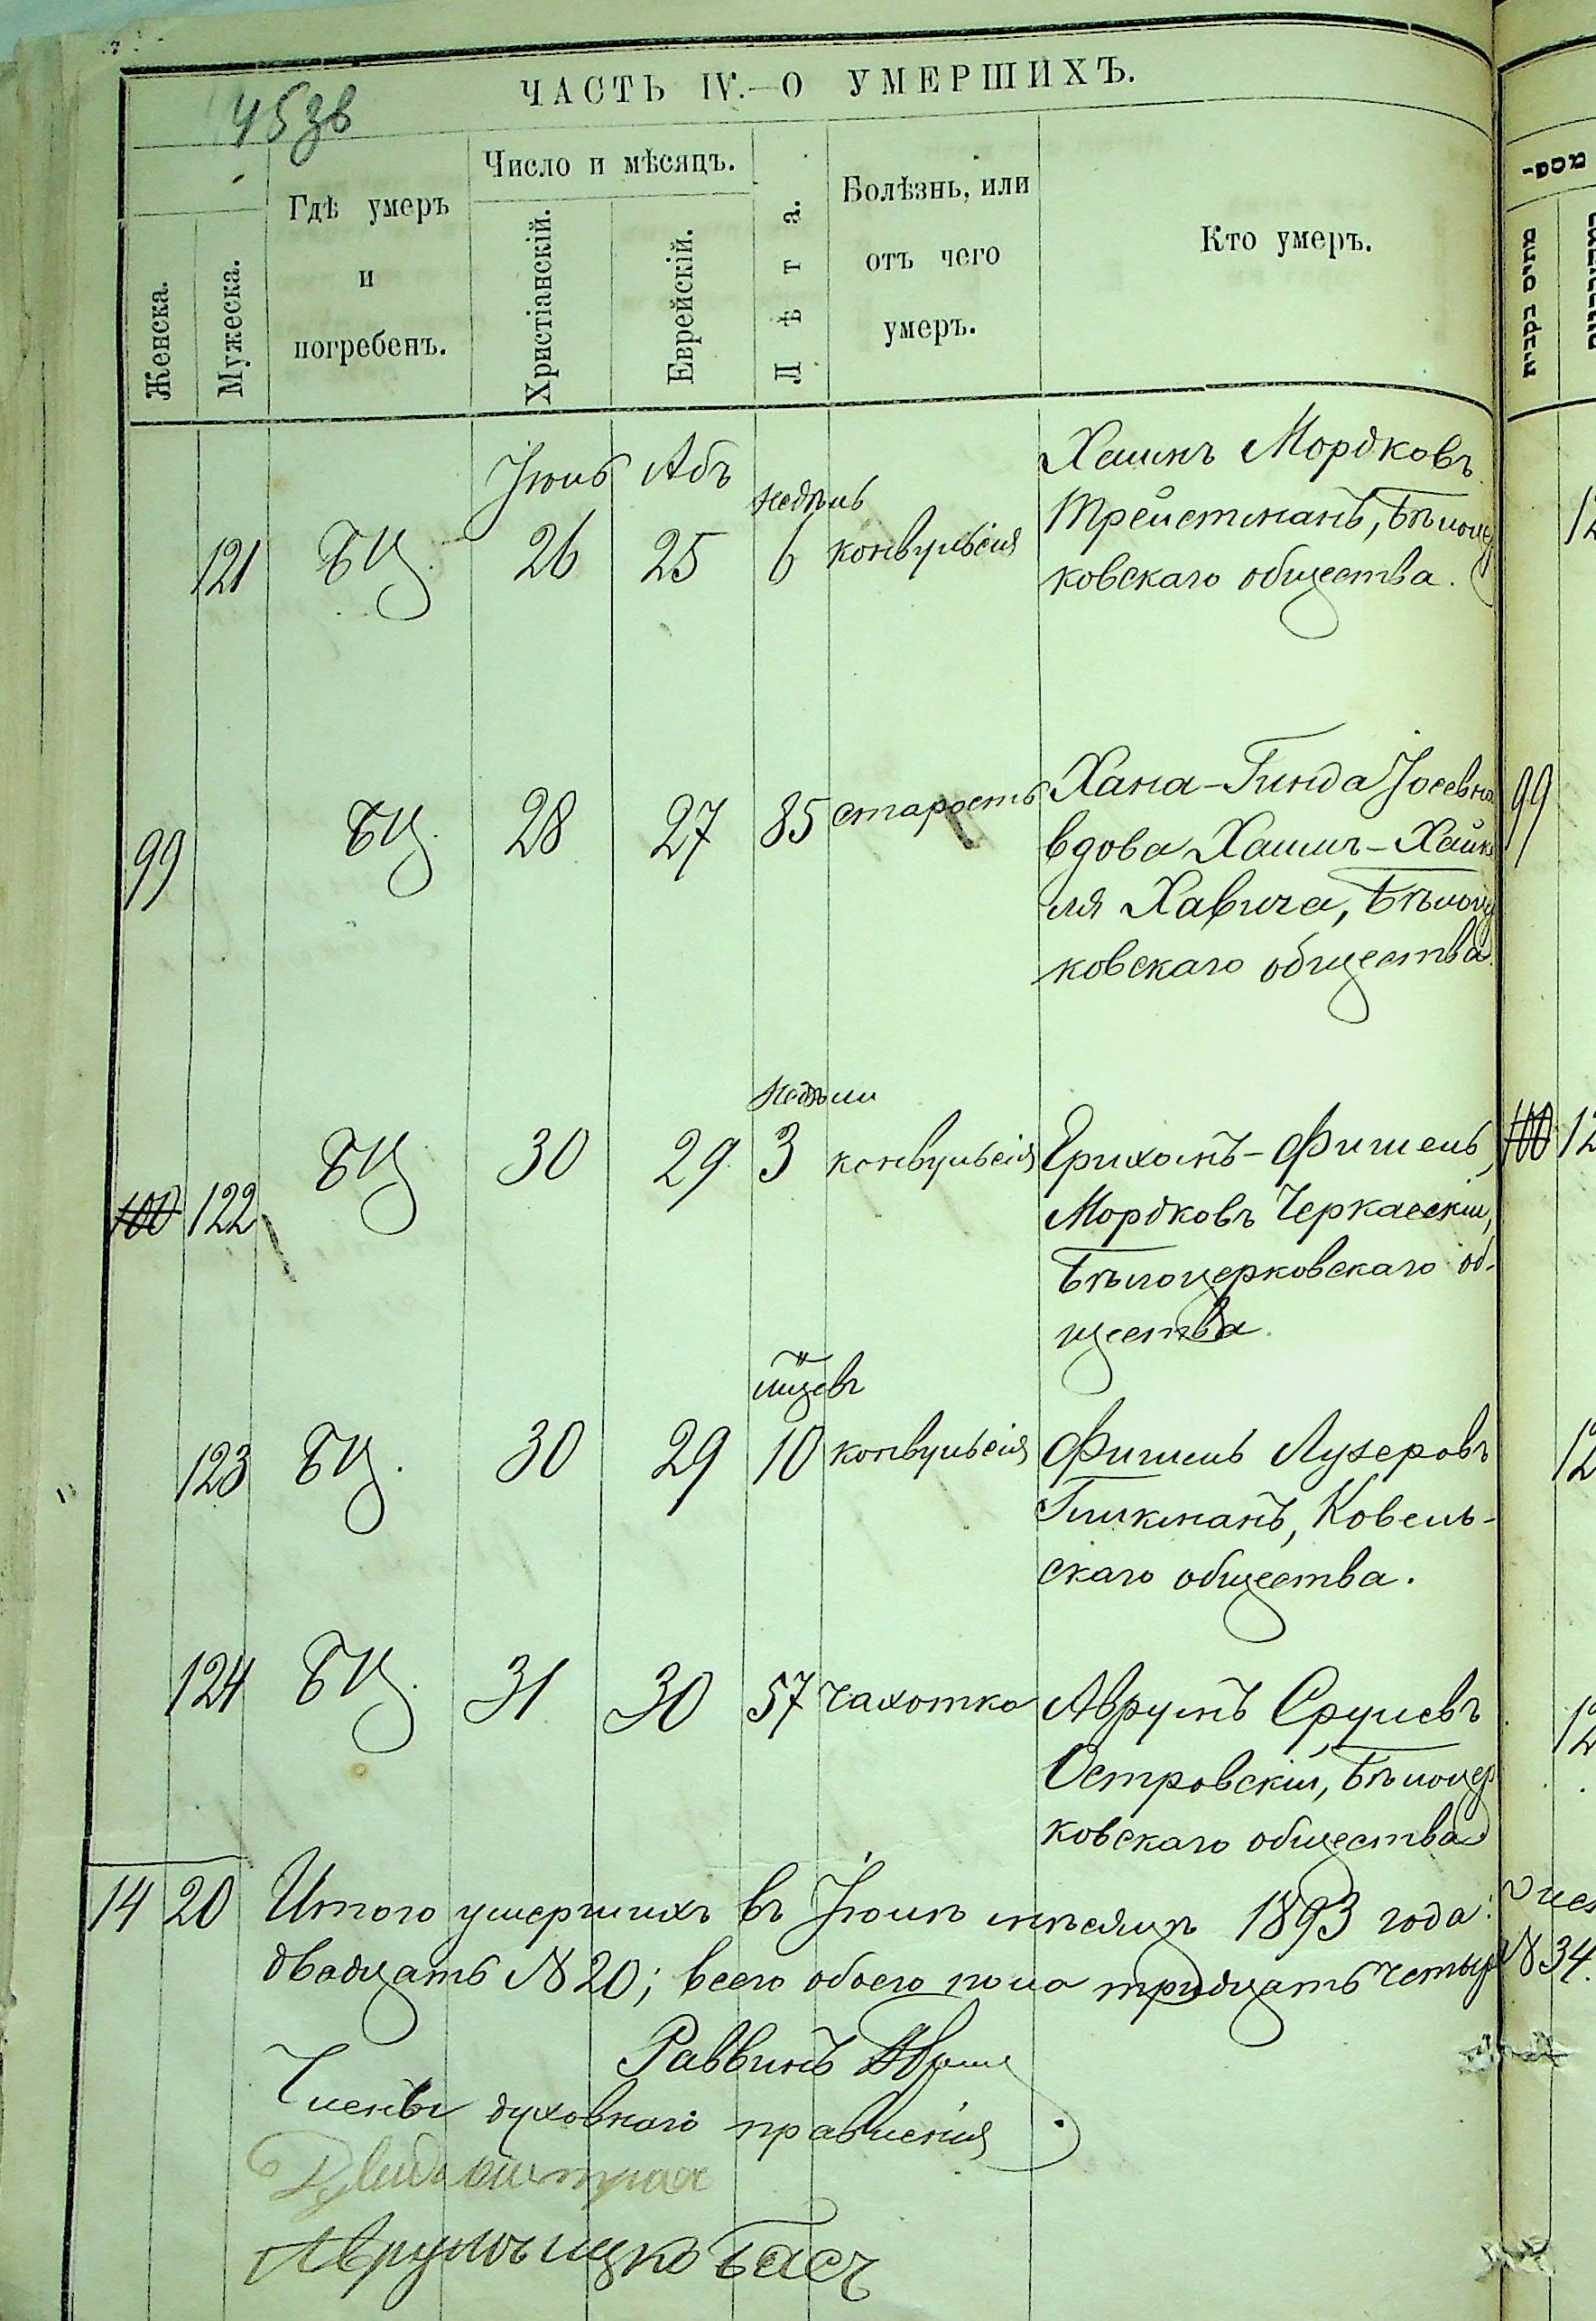 45зв
ЧАСТЬ IV.—О УМЕРШИХЪ.
Женска.
Мужеска.
Гдѣ умеръ
и
погребенъ.
Число и мѣсяцъ.
Христіанскій.
Еврейскій.
Лѣта.
Болѣзнь, или
отъ чего
умеръ.
Кто умеръ.
מתים בקבית
Іюль Абъ
121 БЦ. 26 25 недѣль 6 конвульсія
Хаимъ Мордковъ
Тройстманъ, Бѣлоцер
ковскаго общества.
99 БЦ. 28 27 85 старость
Хана-Гинда Іосевна
вдова Хаимъ-Хайке
ля Хавича, Бѣлоцер
ковскаго общества.
99
100 122 БЦ. 30 29 недѣли 3 конвульсія
Ерихомъ-Фишель
Мордковъ Черкасскій,
Бѣлоцерковскаго об-
щества.
100 12
123 БЦ. 30 29 мцевъ 10 конвульсія
Фишель Лузеровъ
Гликманъ, Ковель-
скаго общества.
124 БЦ. 31 30 57 чахотка
Аврумъ Срулевъ
Островскій, Бѣлоцер
ковскаго общества
14 20 Итого умершихъ въ Іюлѣ мѣсяцѣ 1893 года:
двадцать № 20; всего обоего пола тридцать четыре № 34.
Раввинъ
Члены духовнаго правленія
Аврумъ Ицко Басъ